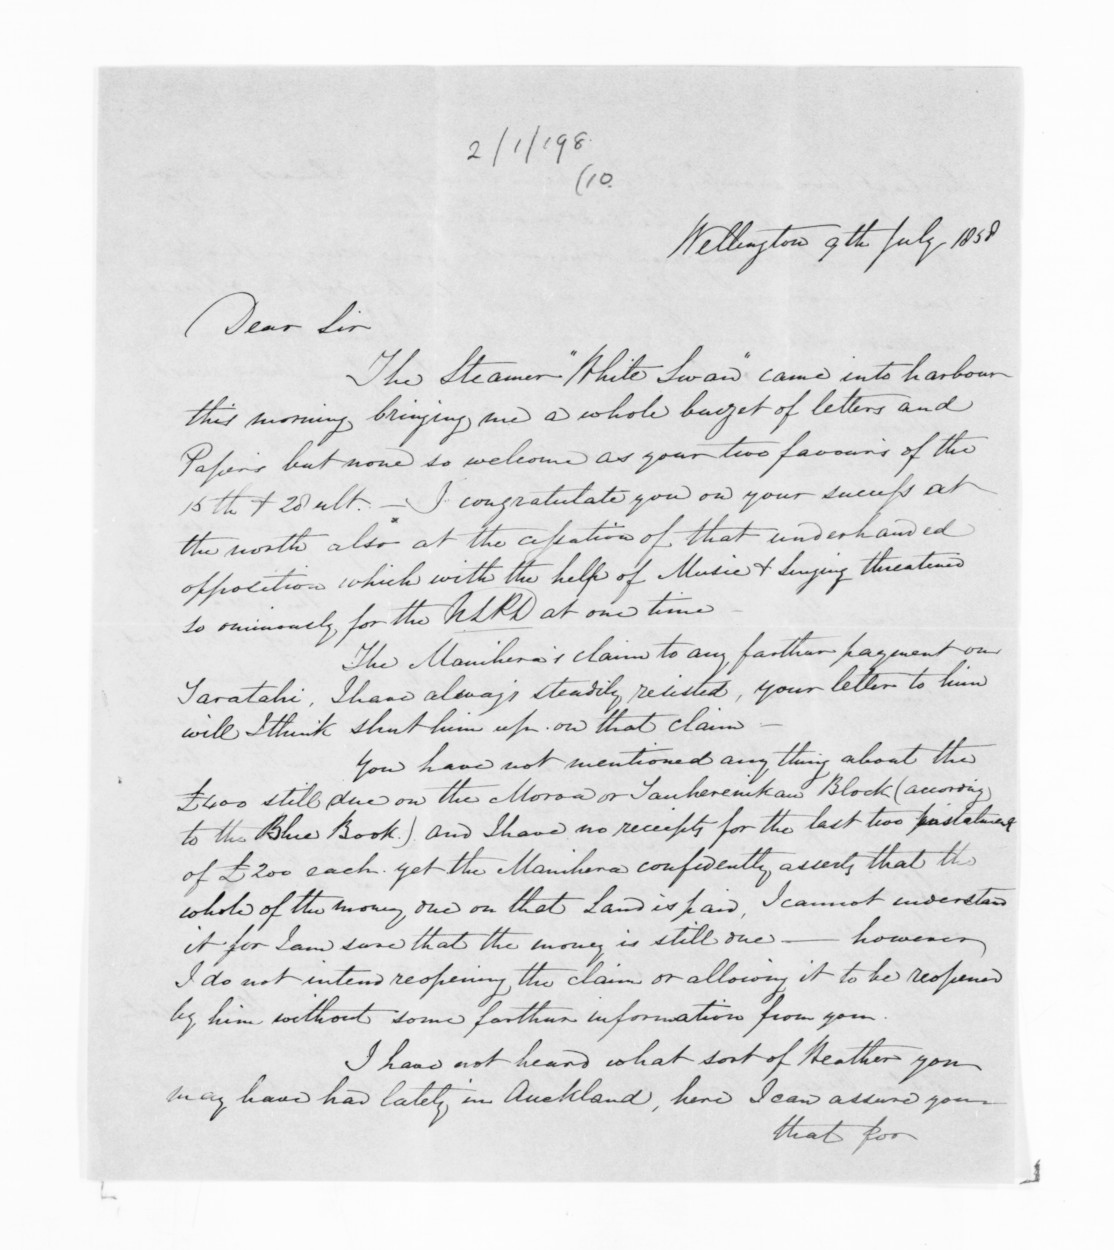 2/1/198
(10.
Wellington 9th July 1858
Dear Sir
The Steamer "White Swan" came into harbour
this morning bringing me a whole budget of letters and
Papers but none so welcome as your two favours of the
15th & 28 ult. — I congratulate you on your success at
the north also at the cessation of that underhanded
opposition which with the help of Music & Singing threatened
so ominously for the NLPD at one time —
The Manihera's claim to any farther payment on
Taratahi, I have always steadily resisted, your letter to him
will I think shut him up on that claim —
You have not mentioned any thing about the
£400 still due on the Moroa or Tauherenikau Block (according
to the Blue Book.) and I have no receipts for the last two instalments
of £200 each. yet the Manihera confidently asserts that the
whole of the money due on that Land is paid, I cannot understand
it for I am sure that the money is still due — however
I do not intend reopening the claim or allowing it to be reopened
by him without some farther information from you.
I have not heard what sort of Weather you
may have had lately in Auckland, here I can assure you
that for